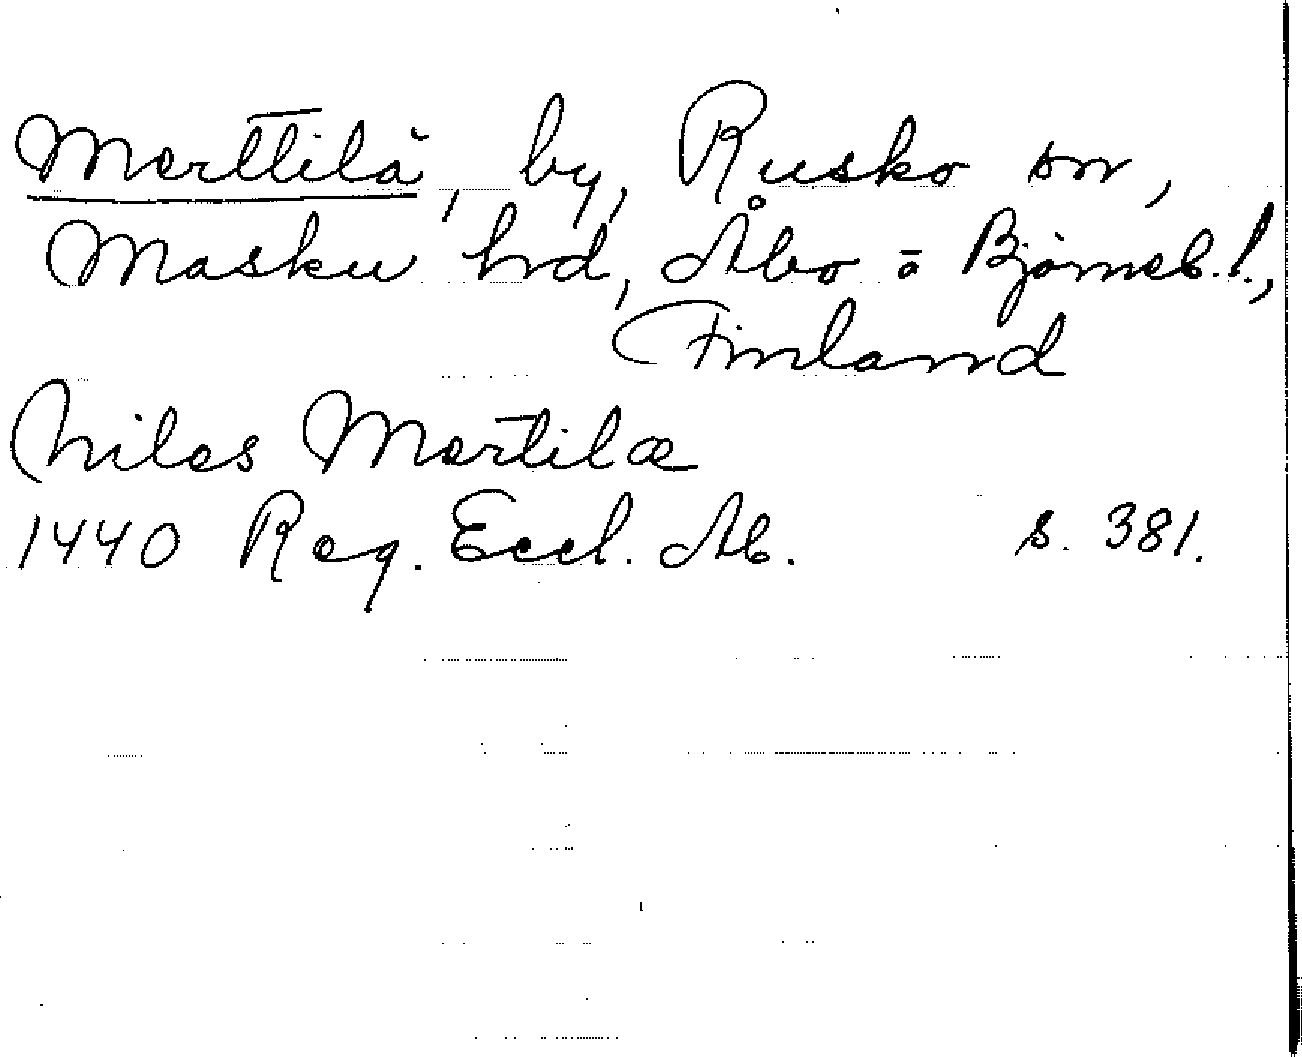 Merttilä, by, Rusko sn,
Masku hd, Åbo o Björneb. l.,
Finland
Niles Mertilæ
1440 Reg. Eccl. Ab. s. 381.